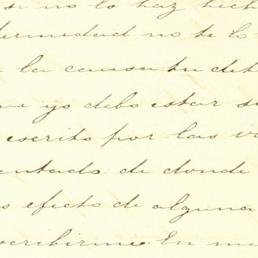 si no lo haz hech
ermedad no te lo
a la causa tu deb
ue yo debo estar s
escrito por las v
entado de donde
s efecto de alguna
scribirme. En mi